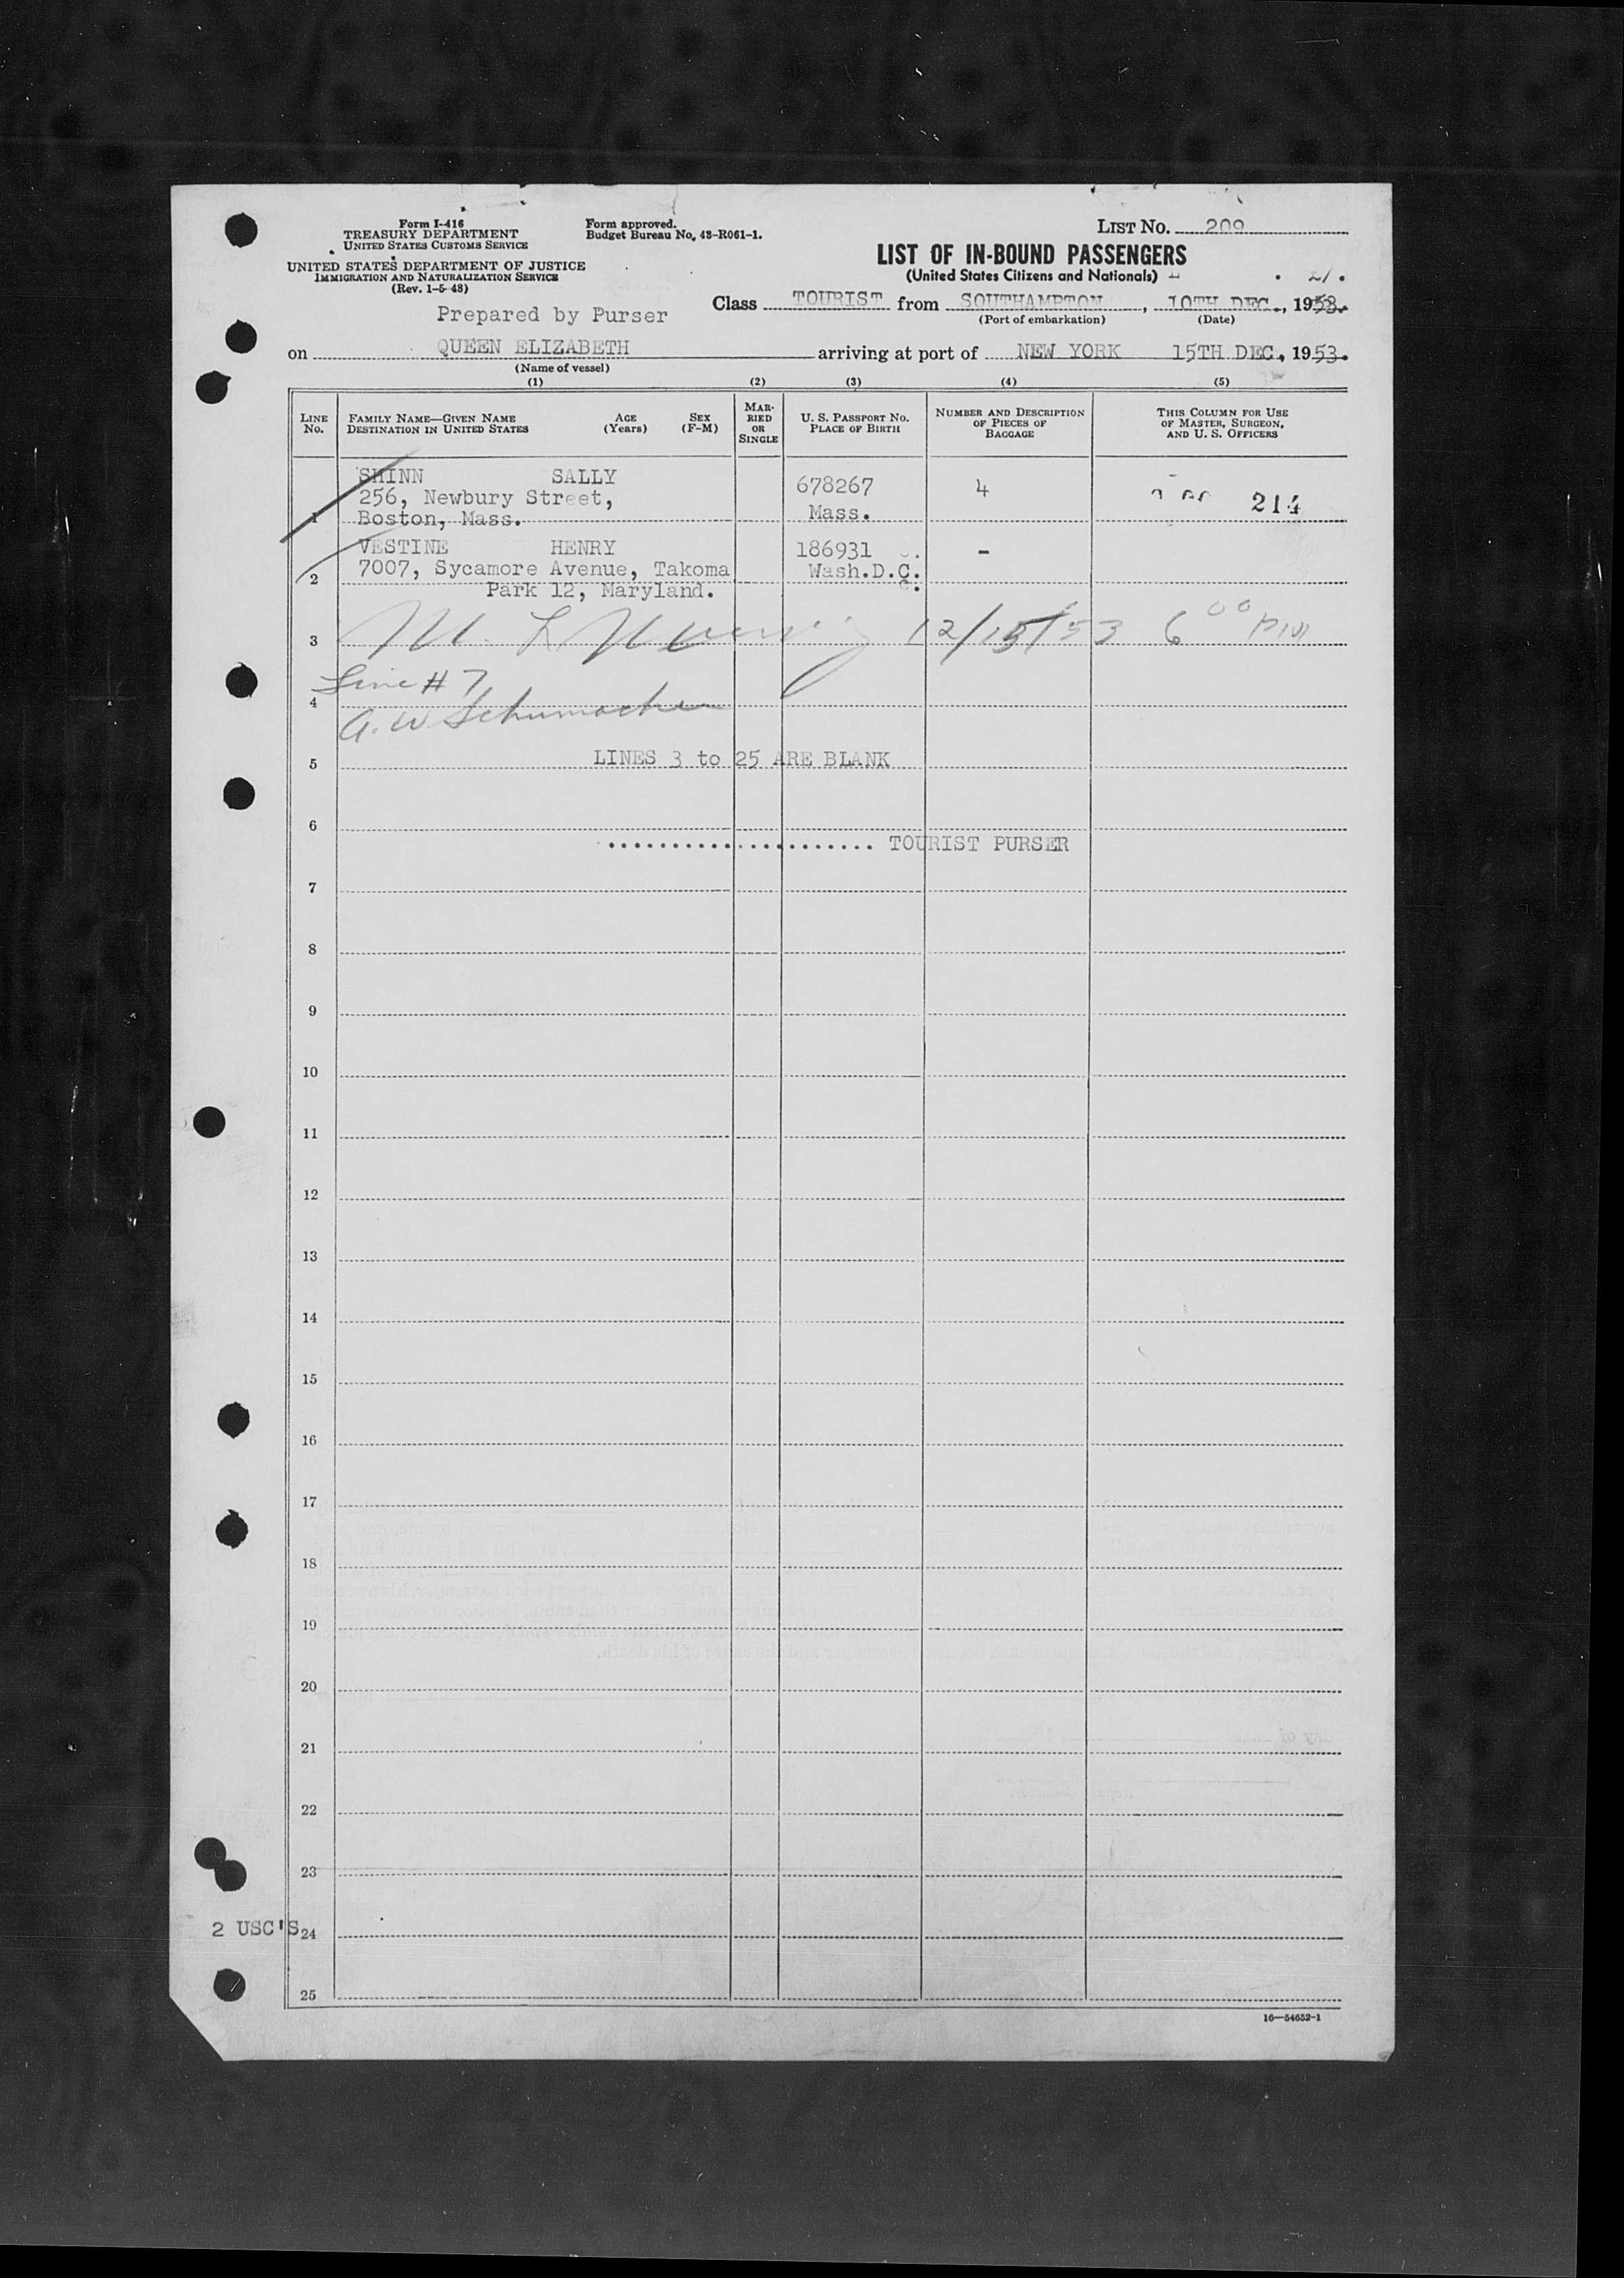 Form I-416
TREASURY DEPARTMENT
UNITED STATES CUSTOMS SERVICE
UNITED STATES DEPARTMENT OF JUSTICE
IMMIGRATION AND NATURALIZATION SERVICE
(Rev. 1-5-48)
Form approved.
Budget Bureau No. 43-R061-1.
LIST NO. 209
LIST OF IN-BOUND PASSENGERS
(United States Citizens and Nationals)
Prepared by Purser
Class TOURIST from SOUTHAMPTON, 10TH DEC., 1953.
(Port of embarkation) (Date)
on QUEEN ELIZABETH arriving at port of NEW YORK 15TH DEC., 1953.
(Name of vessel)
(1) (2) (3) (4) (5)
LINE NO.
FAMILY NAME—GIVEN NAME
DESTINATION IN UNITED STATES
AGE (Years)
SEX (F-M)
MARRIED OR SINGLE
U. S. PASSPORT NO.
PLACE OF BIRTH
NUMBER AND DESCRIPTION OF PIECES OF BAGGAGE
THIS COLUMN FOR USE OF MASTER, SURGEON, AND U. S. OFFICERS
SHINN SALLY 678267 4 214
256, Newbury Street,
1 Boston, Mass. Mass.
VESTINE HENRY 186931 -
2 7007, Sycamore Avenue, Takoma Wash.D.C.
Park 12, Maryland.
3 12/15/53 6 00 PM
Line # 7
4 A. W. Schumacher
LINES 3 to 25 ARE BLANK
5
6
..................... TOURIST PURSER
7
8
9
10
11
12
13
14
15
16
17
18
19
20
21
22
23
2 USC'S 24
25
16—54652-1